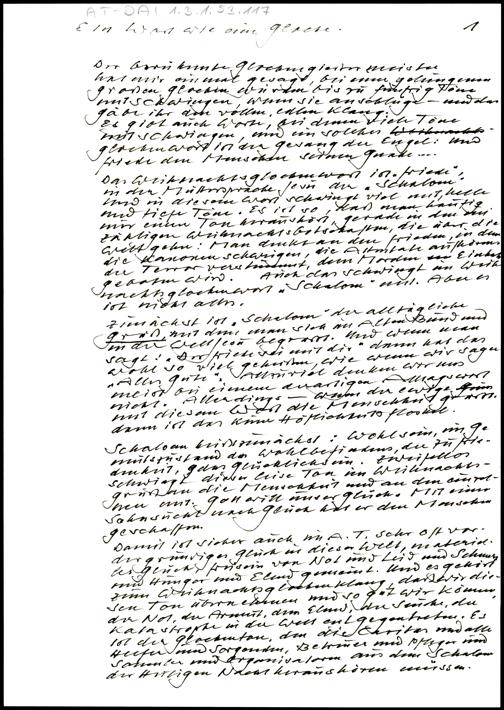 AT-DAI 1.3.1.93.117
Ein Wort wie eine Glocke.
1
Der berühmte Glockengießermeister
hat mir einmal gesagt, bei einer gelungenen
großen Glocke würden bis zu fünfzig Töne
mitschwingen, wenn sie anschlüge – und das
gäbe ihr den vollen, edlen Klang.
Es gibt auch Worte, bei denen viele Töne
mitschwingen, und ein solches
glockenwort ist der Gesang der Engel: Und
Friede den Menschen seiner Gnade....
Das Weihnachtsglockenwort ist „Friede“,
in der Muttersprache Jesu der „Schalom“,
Und in diesem Wort schwingt viel mit, helle
und tiefe Töne. Es ist so, daß man häufig
nur einen Ton heraushört, gerade in den un-
zähligen Weihnachtsbotschaften, die über die
Welt gehn: Man denkt an den Frieden, in dem
die Kanonen schweigen, die Attentate aufhören,
der Terror verstummt, dem Morden Einhalt
geboten wird. Auch das schwingt im Weih-
nachtsglockenwort „Schalom“ mit. Aber es
ist nicht alles.
Zunächst ist „Schalom“ der alltägliche
Gruß, mit dem man sich im Alten Bund und
in der Welt Jesu begrüßt. Und wenn man
sagt: „Der Friede sei mit dir“, dann hat das
wohl so viel geheißen, wie wenn wir sagen
„Alles Gute“. Natürlich denken wir uns
meist bei einem derartigen Alltagswort
nicht. Allerdings – wenn der ewige
mit diesem Wort die Menschheit grüßt,
dann ist das keine Höflichkeitsfloskel.
Schalom heißt zunächst: Wohlsein, im Ge-
mütszustand des Wohlbefindens, der Zufrie-
denheit, des Glücklichseins. Zweifellos
schwingt dieser leise Ton im Weihnachts-
gruß an die Menschheit und an den einzel-
nen mit: Gott will unser Glück. Mit einer
Sehnsucht nach Glück hat er den Menschen
geschaffen.
Damit ist sicher auch, im A.T. sehr oft vor-
dergründiges Glück in dieser Welt, materiel-
les Glück, Freisein von Not und Leid und Schmerz
und Hunger und Elend gemeint. Und es gehört
zum Weihnachtsglockenklang, daß wir die-
sen Ton übernehmen und so gut wir können,
der Not, der Armut, dem Elend, der Seuche, der
Katastrophe in der Welt entgegentreten. Es
ist der Glockenton, den die Caritas und alle
Helfer und Sorgenden, Betreuer und Pfleger und
Sammler und Organisatoren aus dem Schalom
der Heiligen Nacht heraushören müssen.